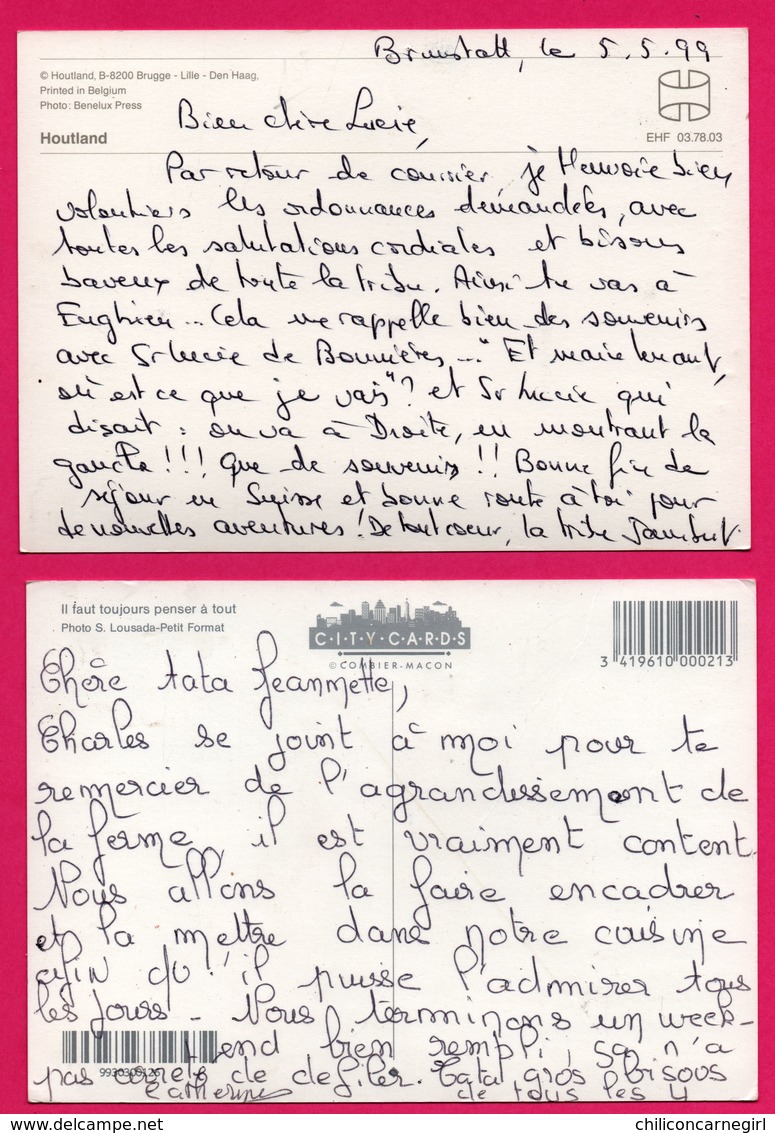 Brunstatt, le 5.5.99
© Houtland, B-8200 Brugge - Lille - Den Haag,
Printed in Belgium
Photo: Benelux Press
Houtland
EHF 03.78.03
Bien chère Lucie,
Par retour de courrier je t'envoie bien
volontiers les ordonnances demandées, avec
toutes les salutations cordiales et bisous
baveux de toute la tribu. Ainsi tu vas à
Enghien... Cela me rappelle bien des souvenirs
avec Sr Lucie de Bonnières..." Et maintenant,
où est ce que je vais"? et Sr Lucie qui
disait : on va à Droite, en montrant la
gauche!!! Que de souvenirs!! Bonne fin de
séjour en Suisse et bonne route à toi pour
de nouvelles aventures! De tout coeur, la tribu
Il faut toujours penser à tout
Photo S. Lousada-Petit Format
C·I·T·Y·C·A·R·D·S
© COMBIER-MACON
3 419610 000213
Chère tata Jeannette,
Charles se joint à moi pour te
remercier de l'agrandissement de
la ferme, il est vraiment content.
Nous allons la faire encadrer
et la mettre dans notre cuisine
afin qu'il puisse l'admirer tous
les jours - Nous terminons un week-
end bien rempli, ça n'a
pas de défiler. Tata gros bisous
de tous les 4
Catherine
chiliconcarnegirl / delcampe.net